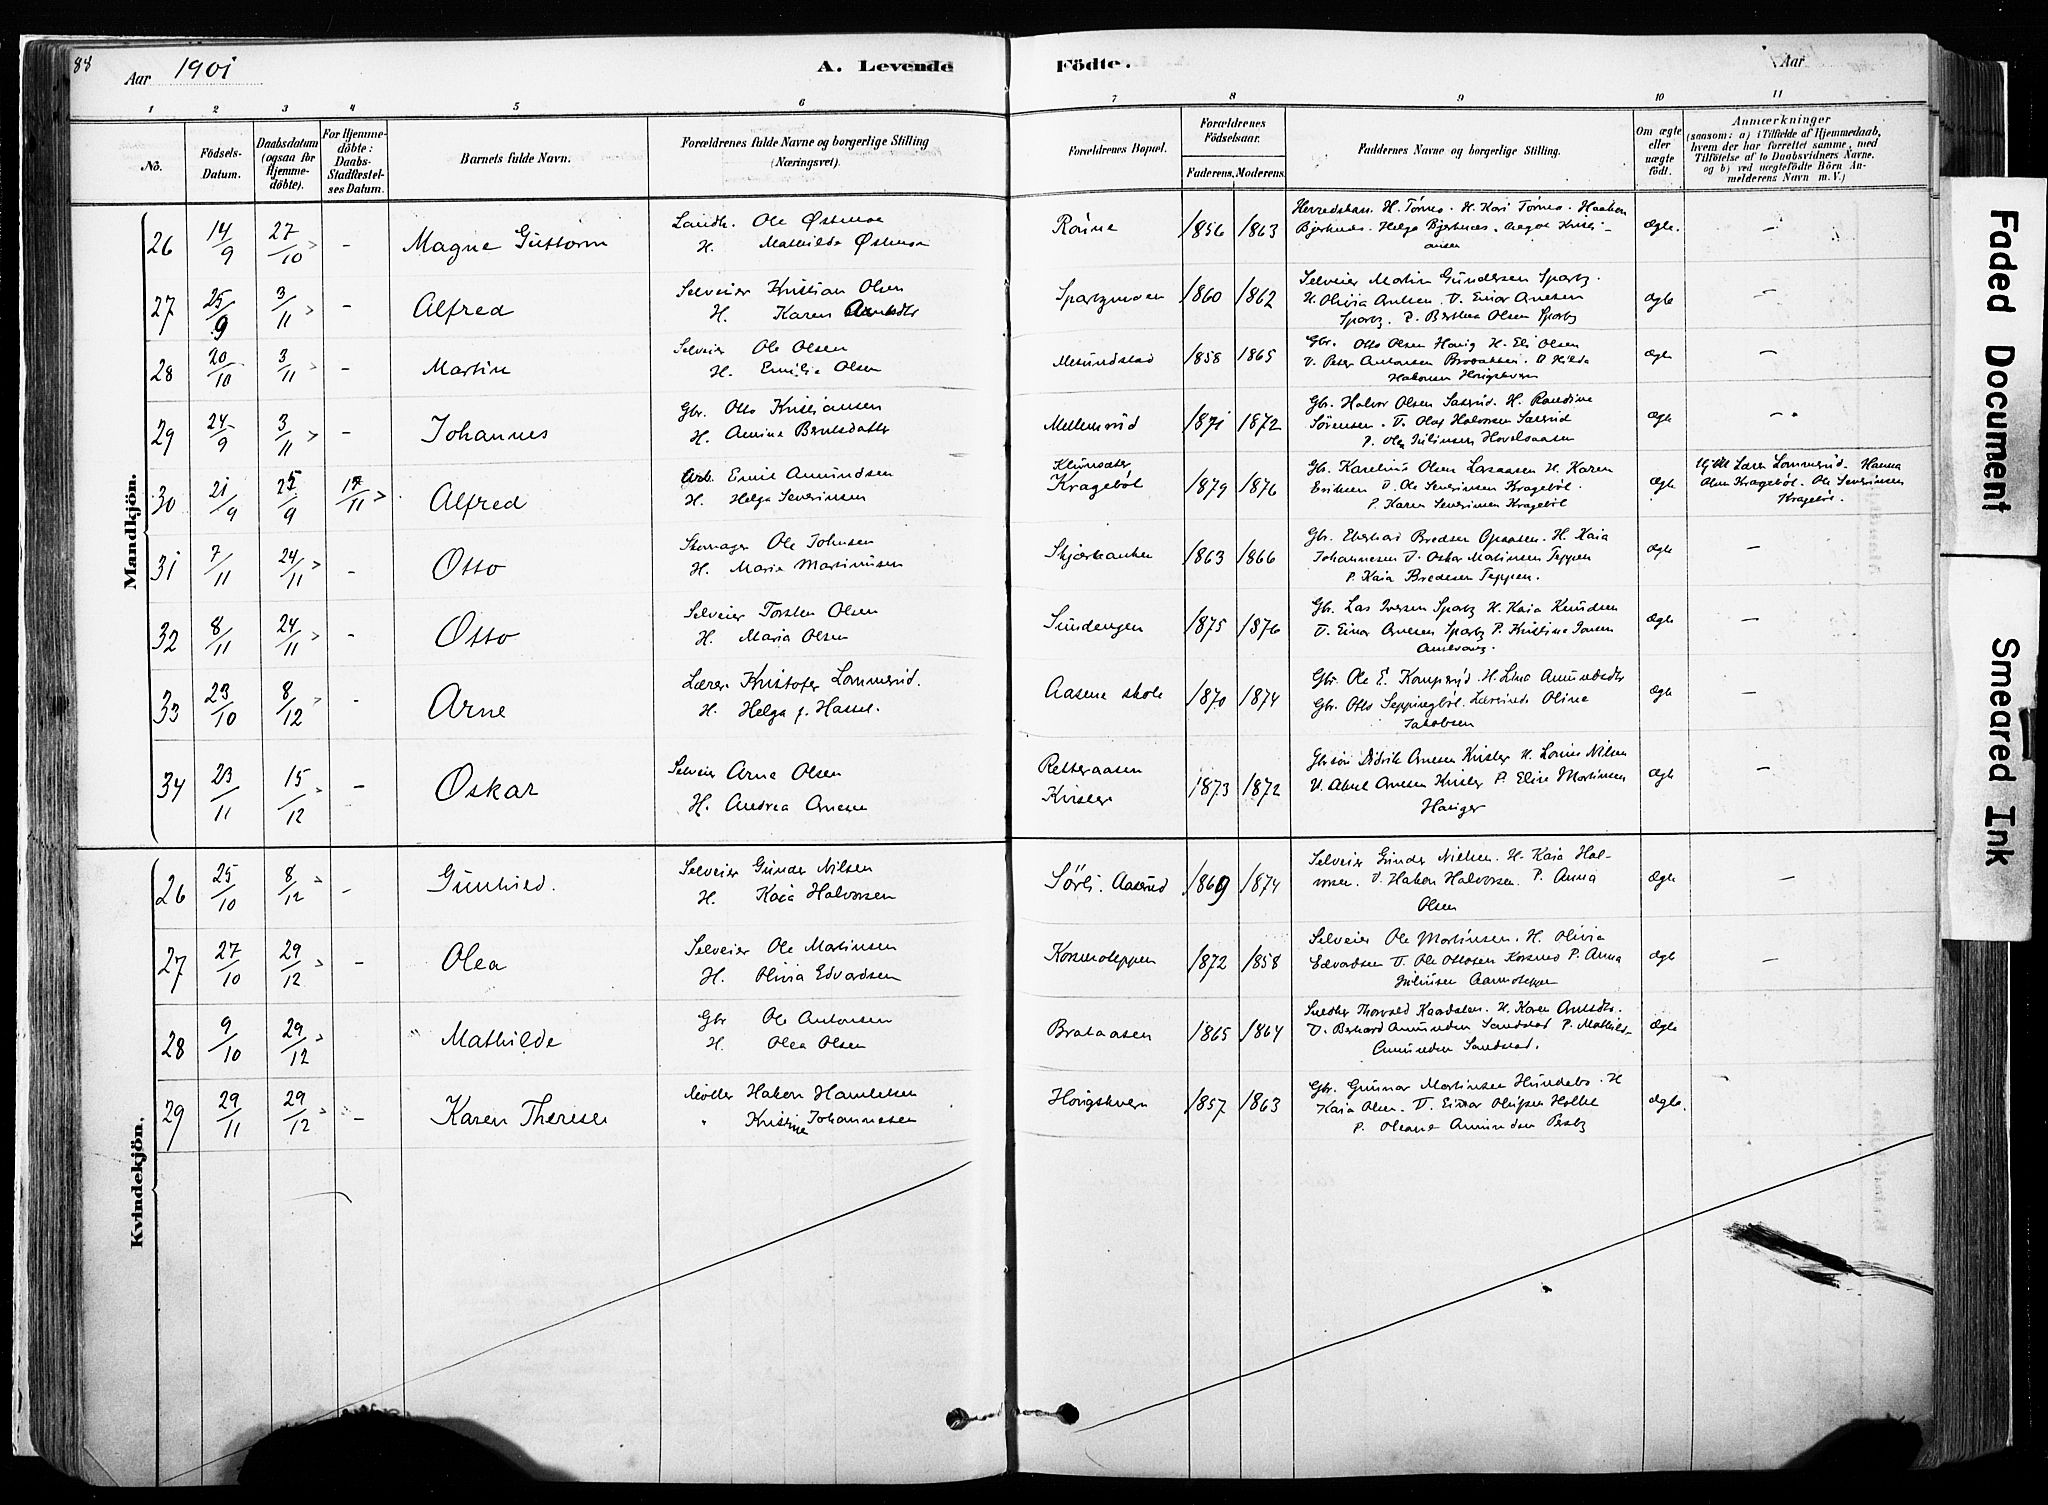 88
Aar 1901
A. Levende Födte.
Aar
1 2 3 4 5 6 7 8 9 10 11
Nö.
Födsels-
Datum.
Daabsdatum
(ogsaa for
Hjemme-
döbte).
For Hjemme-
döbte:
Daabs-
Stadfæstel-
ses Datum.
Barnets fulde Navn.
Forældrenes fulde Navne og borgerlige Stilling
(Næringsvei).
Forældrenes Bopæl.
Forældrenes
Födselsaar.
Faderens. Moderens.
Faddernes Navne og borgerlige Stilling.
Om ægte
eller
uægte
födt.
Anmærkninger
(saasom: a) i Tilfælde af Hjemmedaab,
hvem der har forrettet samme, med
Tilföielse af to Daabsvidners Navne,
og b) ved uægtefödte Börn An-
melderens Navn m. V.)
Mandkjön.
26 14/9 27/10 - Magne Guttorm
Landh. Ole Østmoe
H. Mathilde Østmoe
1856 1863
Herredskass. H. Tørnes. H. Kari Tørnes. Haakon
Bjerknes. Helga Bjerknes.
ægte. -
27 25/9 3/11 - Alfred
Selveier Kristian Olsen
H. Karen
Sparbymoen 1860 1862
Selveier Martin Gundersen Sparby.
H. Olivia. U. Einar Arnesen
Sparby. P. Berthea Olsen Sparby
ægte -
28 20/10 3/11 - Martin
Selveier Ole Olsen
H. Emilie Olsen
Mesundstad 1858 1865
Gbr. Otto Olsen Honig H. Eli Olsen
U. Peter Antonsen. P. Hilda
Hakonsen Honigskvern
ægte -
29 24/9 3/11 - Johannes
Gbr. Otto Kristiansen
H. Amine Berntsdatter
Mellemrud 1871 1872
Gbr. Halvor Olsen Saterud. H. Randine
Sørensen. U. Olaf Halvorsen Saterud
P. Olea Julinsen Hovelsaasen
ægte -
30 21/9 25/9 17/11 Alfred
Arb. Emil Amundsen
H. Helga Severinsen
Kragebøl 1879 1876
Gbr. Karelius Olsen Lasaasen H. Karen
Eriksen U. Ole Severinsen Kragebøl.
P. Karen Severinsen Kragebøl
ægte
Hj.dbt Lærer Lommerud. Hanna
Olsen Kragebøl. Ole Severinsen
Kragebøl.
31 7/11 24/11 - Otto
Ole Johnsen
H. Marie Martinusen
Skjærbanken 1863 1866
Gbr. Eberhard Bredsen Opaasen. H. Kaia
Johannesen U. Oskar Martinsen Teppen
P. Kaia Bredesen Teppen.
ægte -
32 8/11 24/11 - Otto
Selveier Torsten Olsen
H. Maria Olsen
Sundengen 1875 1876
Gbr. Lars Iversen Sparby H. Kaia Knudsen
U. Einar Arnesen Sparby P. Kristine Jonsen
ægte -
33 23/10 8/12 - Arne
Lærer Kristofer Lommerud.
H. Helga f. Hassel.
Aasene skole 1870 1874
Gbr. Ole E. Kamperud. H. Lina Amundsdtr
Gbr. Otto Seppingbøl. Lærerinde Oline
Jakobsen
ægte -
34 23/11 15/12 - Oskar
Selveier Arne Olsen
H. Andrea Arnesen
Retteraasen
Kirsler 1873 1872
Gbrsøn Didrik Arnesen Kirsler H. Lovise Nilsen
U. Arnesen Kirsler P. Elise Martinsen
Hanger
ægte -
Kvindekjön.
26 25/10 8/12 - Gunhild.
Selveier Gunder Nilsen
H. Kaia Halvorsen
Sørli. Aaserud 1869 1874
Selveier Gunder Nielsen. H. Kaia Hal-
vorsen. U. Hakon Halvorsen. P. Anna
Olsen
ægte -
27 27/10 29/12 - Olea
Selveier Ole Martinsen
H. Olivia Edvardsen
Korsmoteppen 1872 1858
Selveier Ole Martinsen. H. Olivia
Edvardsen U. Ole Ottosen Korsmo P. Anna
Juliusen Aarmoteppen
ægte -
28 9/10 29/12 " Mathilde
Gbr Ole Antonsen
H. Olea Olsen
Brataasen 1865 1864
Thorvald Kaardalen. H. Karen
U. Berhard Amundsen Sandstad P. Mathilde
Amundsen Sandstad.
ægte
29 29/11 29/12 - Karen Therese
Møller Hakon
" Kristine Johannesen
Honigskvern 1857 1863
Gbr. Gunnar Martinsen Hundebo. H
Kaia Olsen. U. Einar Olufsen Holbek
P. Oleane Amundsen Perby
ægte.
Faded Document
Smeared Ink